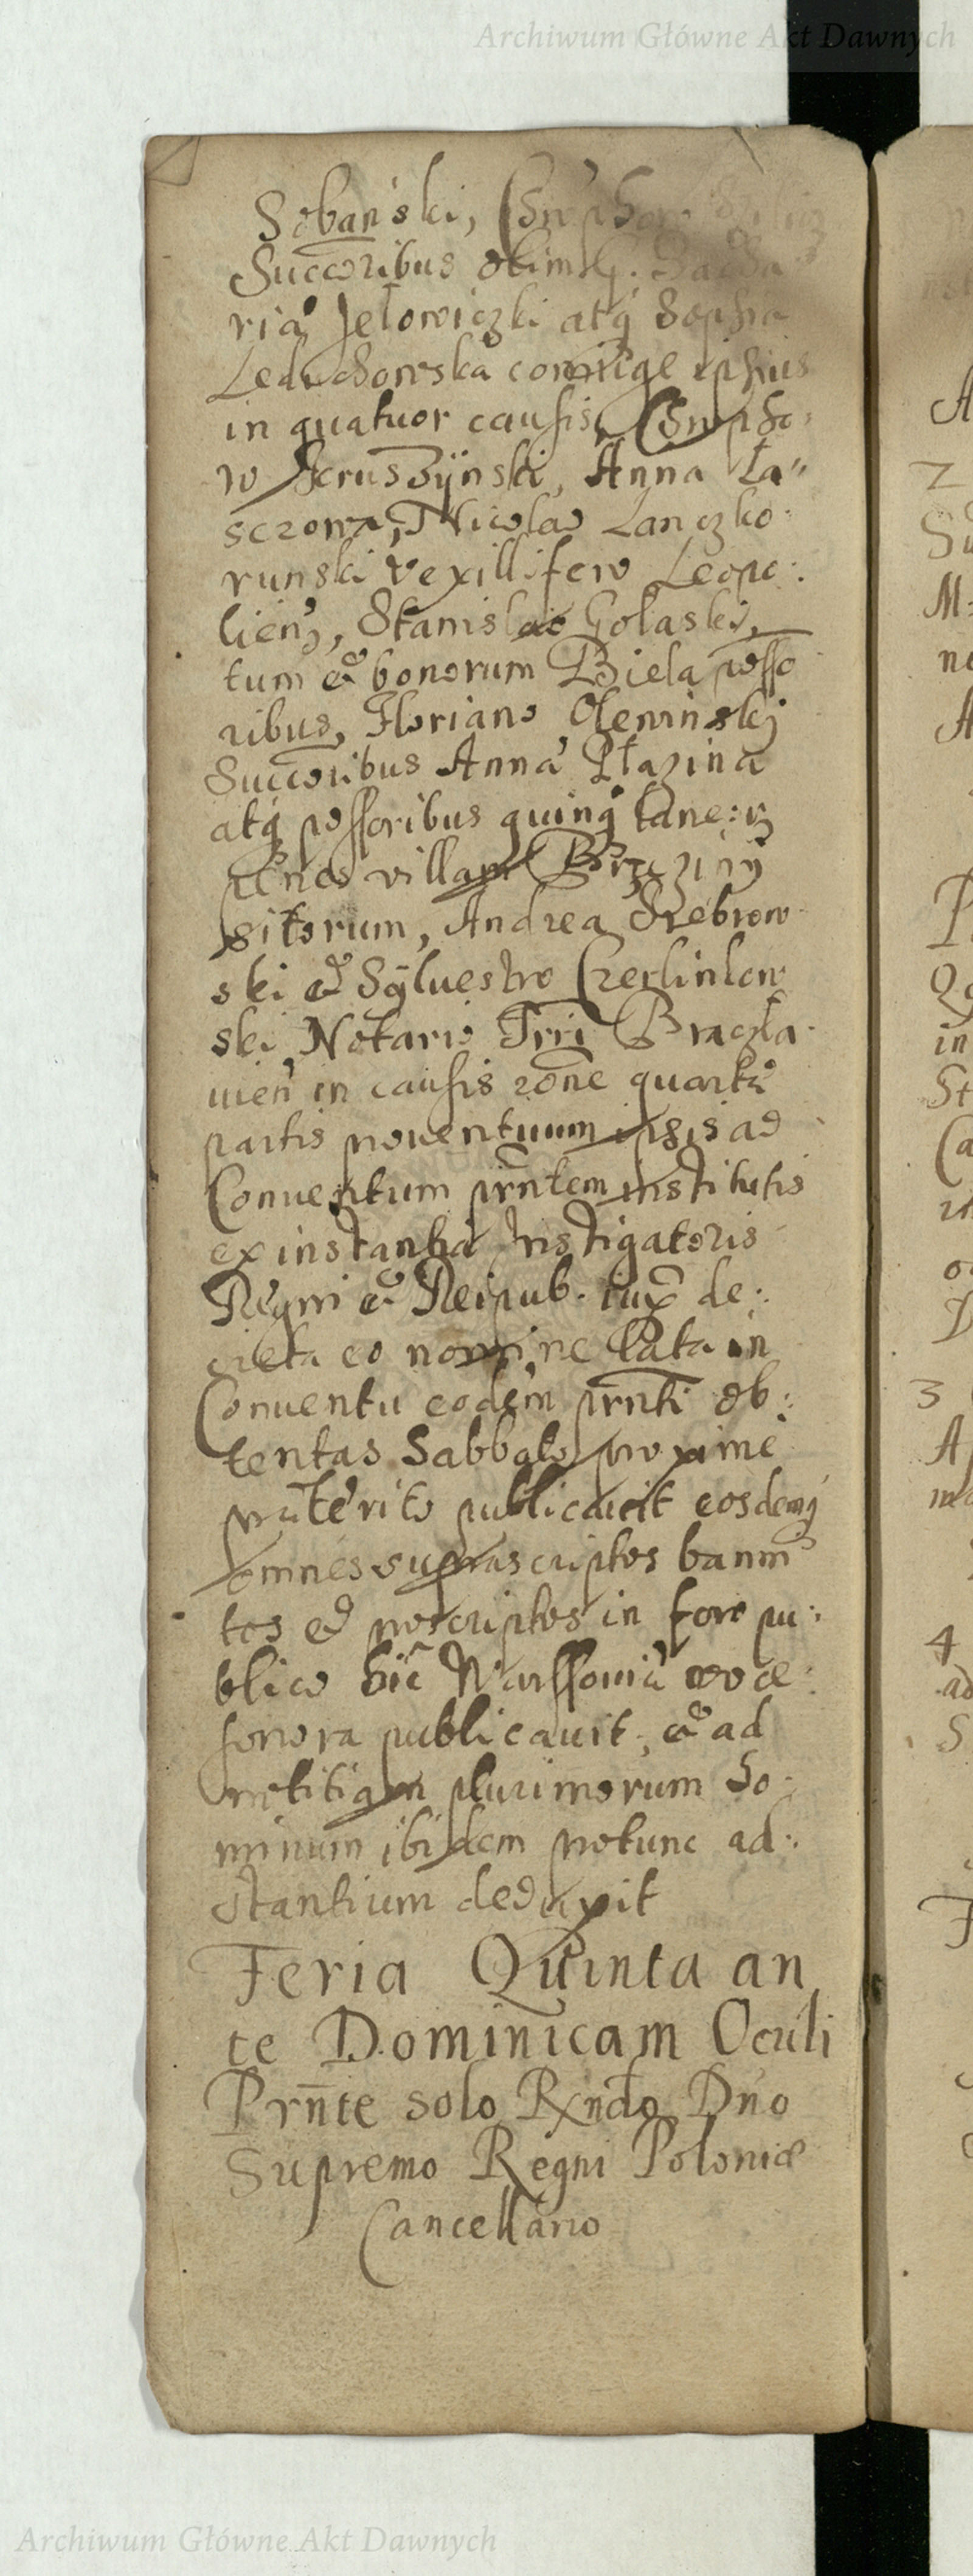 Archiwum Główne Akt Dawnych
Sobański,
Succoribus olim G.
ria Jełowiczki atq Sophia
Leduchowska coniuge ipsius
in quatuor causis, Chrispho:
ro Jerusзÿnski, Anna Ła"
sczowa, Nicolao Lanczko:
runski vexillifero Leopo:
lien, Stanislao Golaski,
tum et bonorum Biela posso
ribus, Floriano Olewinskj
Succoribus Anna Płazina
atq possoribus quinq
penes villam Brzeziny
sitorum, Andrea Srebrow
ski et Sÿluestro Czerlinkow
ski Notario Trri Bracła:
uien in causis rõne quarta
partis prouentuum ipsis ad
Conuentum prntem institutis
ex instantia Instigatoris
Regni et Reipub. iux de:
creta eo nomine lata in
Conuentu eodem prnti ob:
tentas Sabbato proxime
præterito publicauit eosdemq
omnes suprascriptos banni
tos et proscriptos in foro pu:
blico hic Warssouia voce
sonora publicauit, et ad
notitiam plurimorum ho:
minum ibidem protunc ad:
stantium deduxit
Feria Quinta an
te Dominicam Oculi
Prnte solo Rxndo Dno
Supremo Regni Poloniæ
Cancellario
2
3
4
Archiwum Główne Akt Dawnych